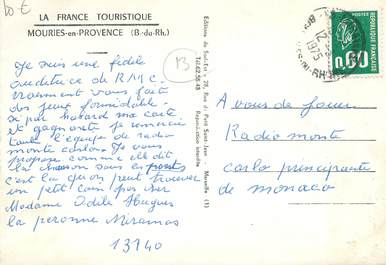 10 €
LA FRANCE TOURISTIQUE
MOURIES-en-PROVENCE (B.-du-Rh.)
13
Je suis une fidèle
auditrice de RMC.
vraiment vous faite
des jeux formidable.
si par hasard ma carte
et gagnante je remercie
toute l'équipe de radio
monte carlo. Je vous
propose comme elle dit
la chanson sous les ponts
c'est la qu'on peut trouver
un petit coin pas cher
Madame Odile Hugues
la peronne Miramas
13140
Editions du Sud-Est - 28, Rue du Petit Saint-Jean - Marseille (1)
Tél. 20-55-48
Reproduction interdite
0,60
12
1975
DU-RH
A vous de jouer
Radio monte
carlo principauté
de monaco